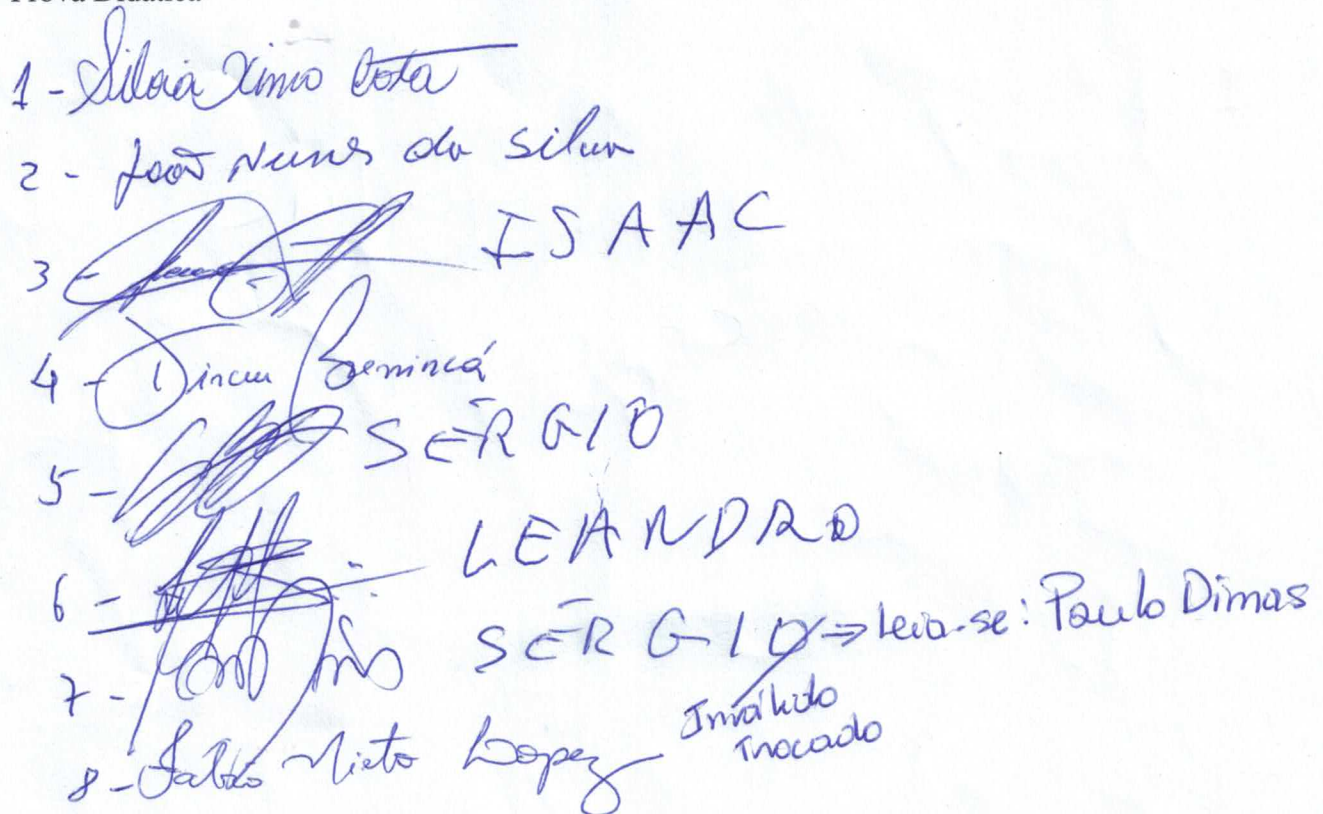 1 - Silvia Ximo Costa
2 - João Nunes da Silva
3 - ISAAC
4 - Dirceu Benincá
5 - SÉRGIO
6 - LEANDRO
7 - SÉRGIO ⇒ Leia-se: Paulo Dimas
Inválido
Trocado
8 - Fabio Nieto Lopez